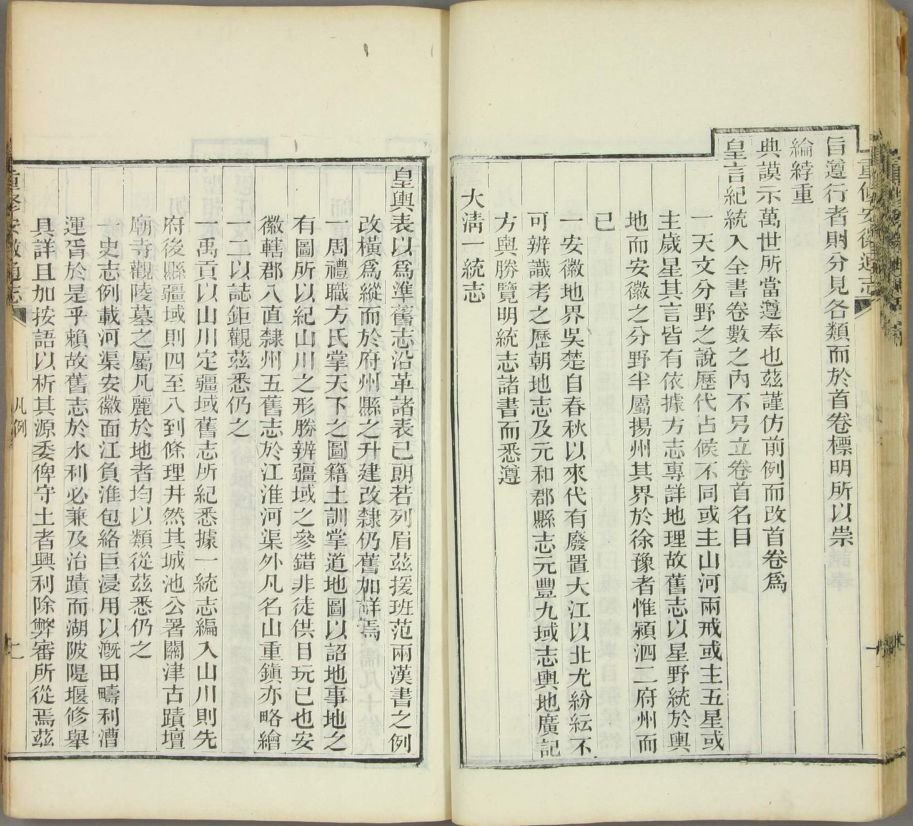 重修安徽通志
旨遵行者則分見各類而於首卷標明所以崇
綸綍重
典謨示萬世所當遵奉也茲謹仿前例而改首卷爲
皇言紀統入全書卷數之內不另立卷首名目
一天文分野之說歷代占候不同或主山河兩戒或主五星或
主歲星其言皆有依據方志專詳地理故舊志以星野統於輿
地而安徽之分野半屬揚州其界於徐豫者惟潁泗二府州而
已
一安徽地界吳楚自春秋以來代有廢置大江以北尤紛紜不
可辨識考之歷朝地志及元和郡縣志元豐九域志輿地廣記
方輿勝覽明統志諸書而悉遵
大清一統志
皇輿表以爲準舊志沿革諸表已朗若列眉茲援班范兩漢書之例
改橫爲縱而於府州縣之升建改隸仍舊加詳焉
一周禮職方氏掌天下之圖籍土訓掌道地圖以詔地事地之
有圖所以紀山川之形勝辨疆域之參錯非徒供目玩已也安
徽轄郡八直隸州五舊志於江淮河渠外凡名山重鎮亦略繪
一二以誌鉅觀茲悉仍之
一禹貢以山川定疆域舊志所紀悉據一統志編入山川則先
府後縣疆域則四至八到條理井然其城池公署關津古蹟壇
廟寺觀陵墓之屬凡麗於地者均以類從茲悉仍之
一史志例載河渠安徽面江負淮包絡巨浸用以溉田疇利漕
運胥於是乎賴故舊志於水利必兼及治蹟而湖陂隄堰修舉
具詳且加按語以析其源委俾守土者興利除弊審所從焉茲
重修安徽通志
凡例